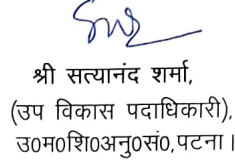 श्री सत्यानंद शर्मा,
(उप विकास पदाधिकारी),
उ०म०शि०अनु०सं०,पटना।